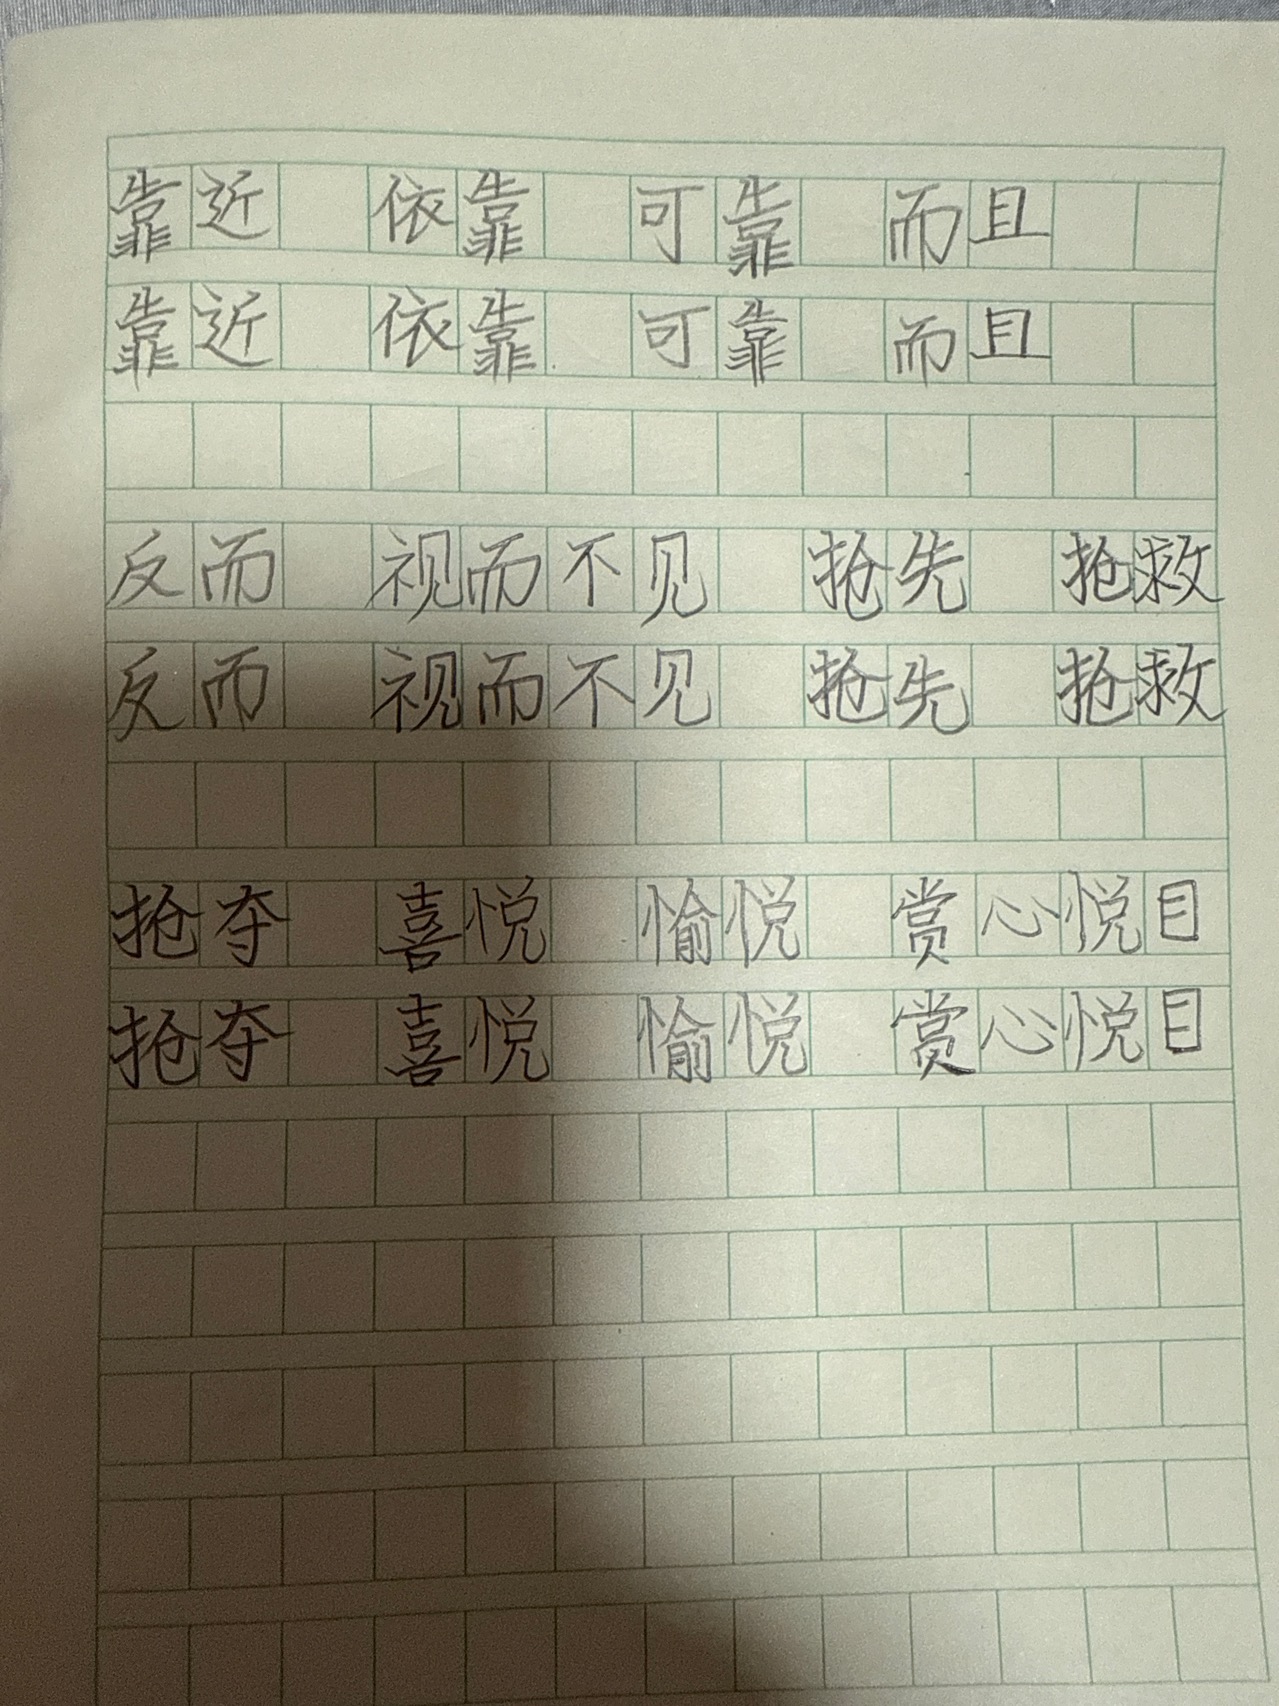 靠近 依靠 可靠 而且
靠近 依靠 可靠 而且
反而 视而不见 抢先 抢救
反而 视而不见 抢先 抢救
抢夺 喜悦 愉悦 赏心悦目
抢夺 喜悦 愉悦 赏心悦目